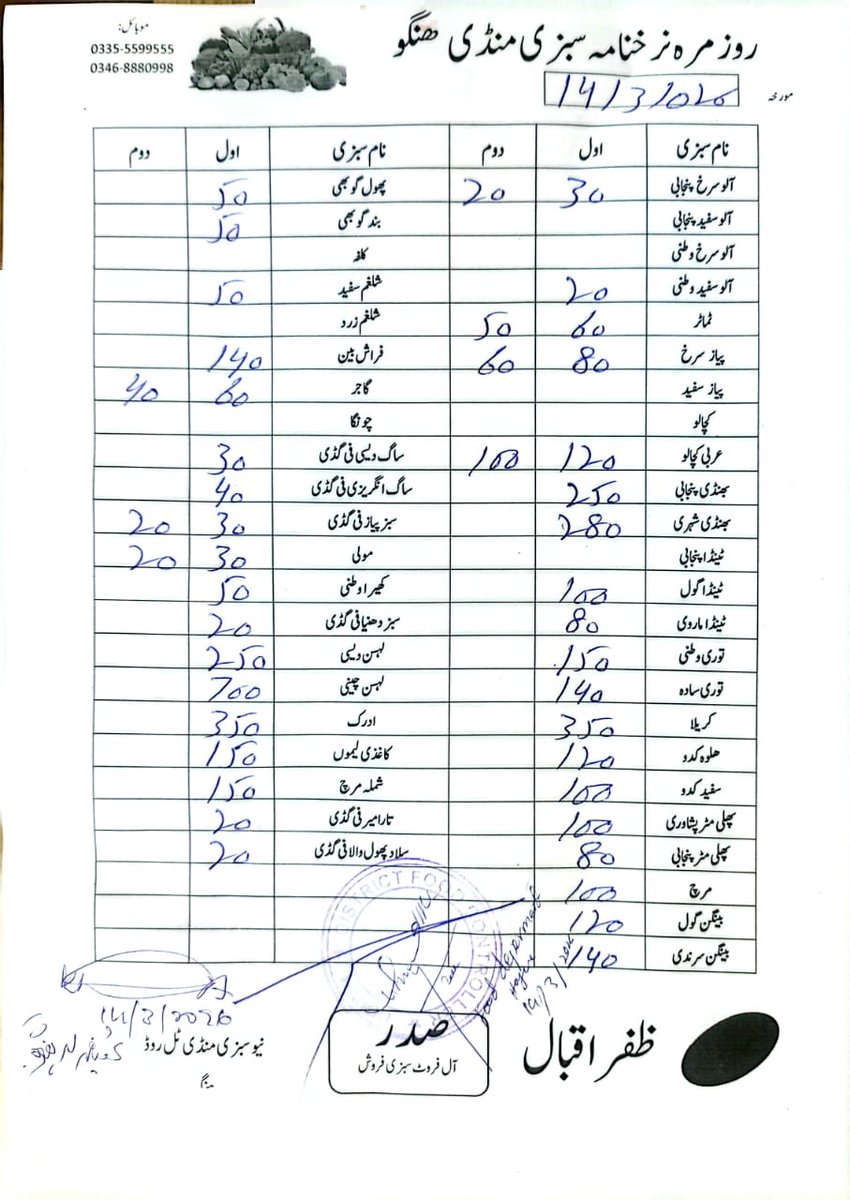 روزمرہ نرخنامہ سبزی منڈی ھنگو
موبائل:
0335-5599555
0346-8880998
مورخہ 14/3/2026
نام سبزی اول دوم نام سبزی اول دوم
آلو سرخ پنجابی 30 20 پھول گوبھی 50
آلو سفید پنجابی بند گوبھی 50
آلو سرخ وطنی کلفہ
آلو سفید وطنی 20 شلغم سفید 50
ٹماٹر 60 50 شلغم زرد
پیاز سرخ 80 60 فراش بین 140
پیاز سفید گاجر 60 40
کچالو چونگا
عربی کچالو 120 100 ساگ دیسی فی گڈی 30
بھنڈی پنجابی 250 ساگ انگریزی فی گڈی 40
بھنڈی شہری 280 سبز پیاز فی گڈی 30 20
ٹینڈا پنجابی مولی 30 20
ٹینڈا گول 100 کھیرا وطنی 50
ٹینڈا ماروی 80 سبز دھنیا فی گڈی 20
توری وطنی 150 لہسن دیسی 250
توری سادہ 140 لہسن چینی 700
کریلا 350 ادرک 350
حلوہ کدو 120 کاغذی لیموں 150
سفید کدو 100 شملہ مرچ 150
پھلی مٹر پشاوری 100 تارامیر فی گڈی 20
پھلی مٹر پنجابی 80 سلاد پھول والا فی گڈی 20
مرچ 100
بینگن گول 120
بینگن سرندی 140
DISTRICT FOOD CONTROLL
Food deparment
Hangu
14/3/2026
ظفر اقبال
صدر
آل فروٹ سبزی فروش
14/3/2026
نیو سبزی منڈی ٹل روڈ